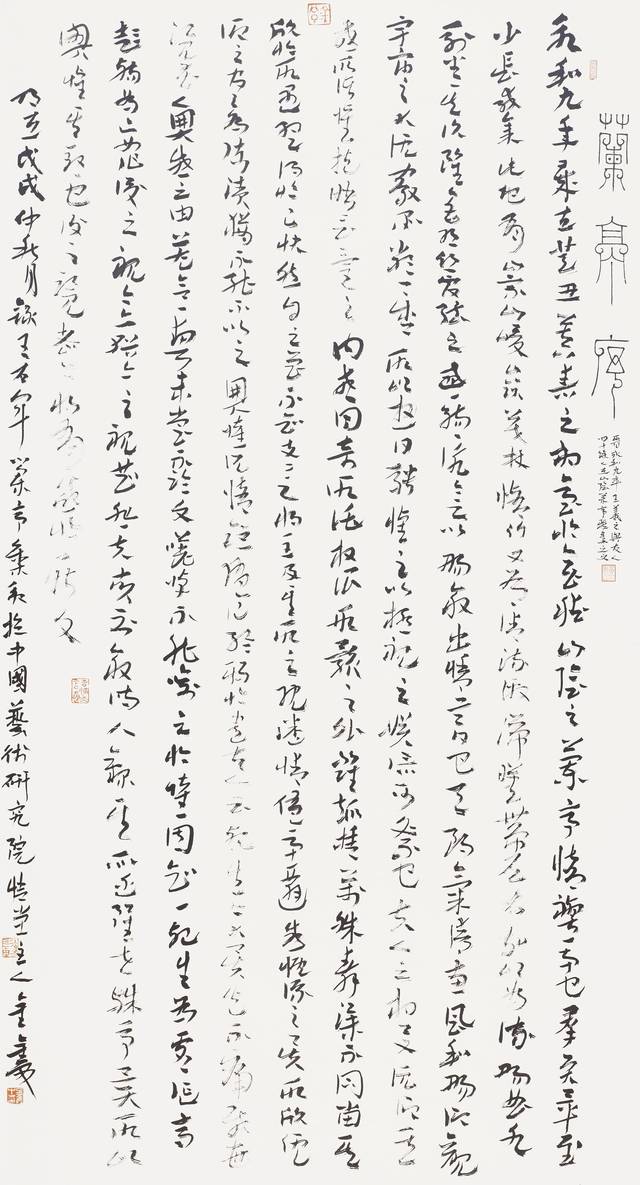 蘭亭序
晉永和九年王羲之與友人
永和九年歲在癸丑暮春之初會於會稽山陰之蘭亭脩禊事也羣賢畢至
少長咸集此地有崇山峻領茂林脩竹又有清流激湍暎帶左右引以為流觴曲水
列坐其次雖無絲竹管弦之盛一觴一詠亦足以暢敘幽情是日也天朗氣清惠風和暢仰觀
宇宙之大俯察品類之盛所以遊目騁懷足以極視聽之娛信可樂也夫人之相與俯仰一世
或取諸懷抱晤言一室之內或因寄所託放浪形骸之外雖趣捨萬殊靜躁不同當其
欣於所遇暫得於己快然自足不知老之將至及其所之既惓情隨事遷感慨係之矣向之所欣俛
仰之間以為陳迹猶不能不以之興懷況脩短隨化終期於盡古人云死生亦大矣豈不痛哉每
攬昔人興感之由若合一契未嘗不臨文嗟悼不能喻之於懷固知一死生為虛誕齊
彭殤為妄作後之視今亦猶今之視昔悲夫故列敘時人錄其所述雖世殊事異所以
興懷其致一也後之覽者亦將有感於斯文
戊戌仲秋月錄王右軍蘭亭集序於中國藝術研究院